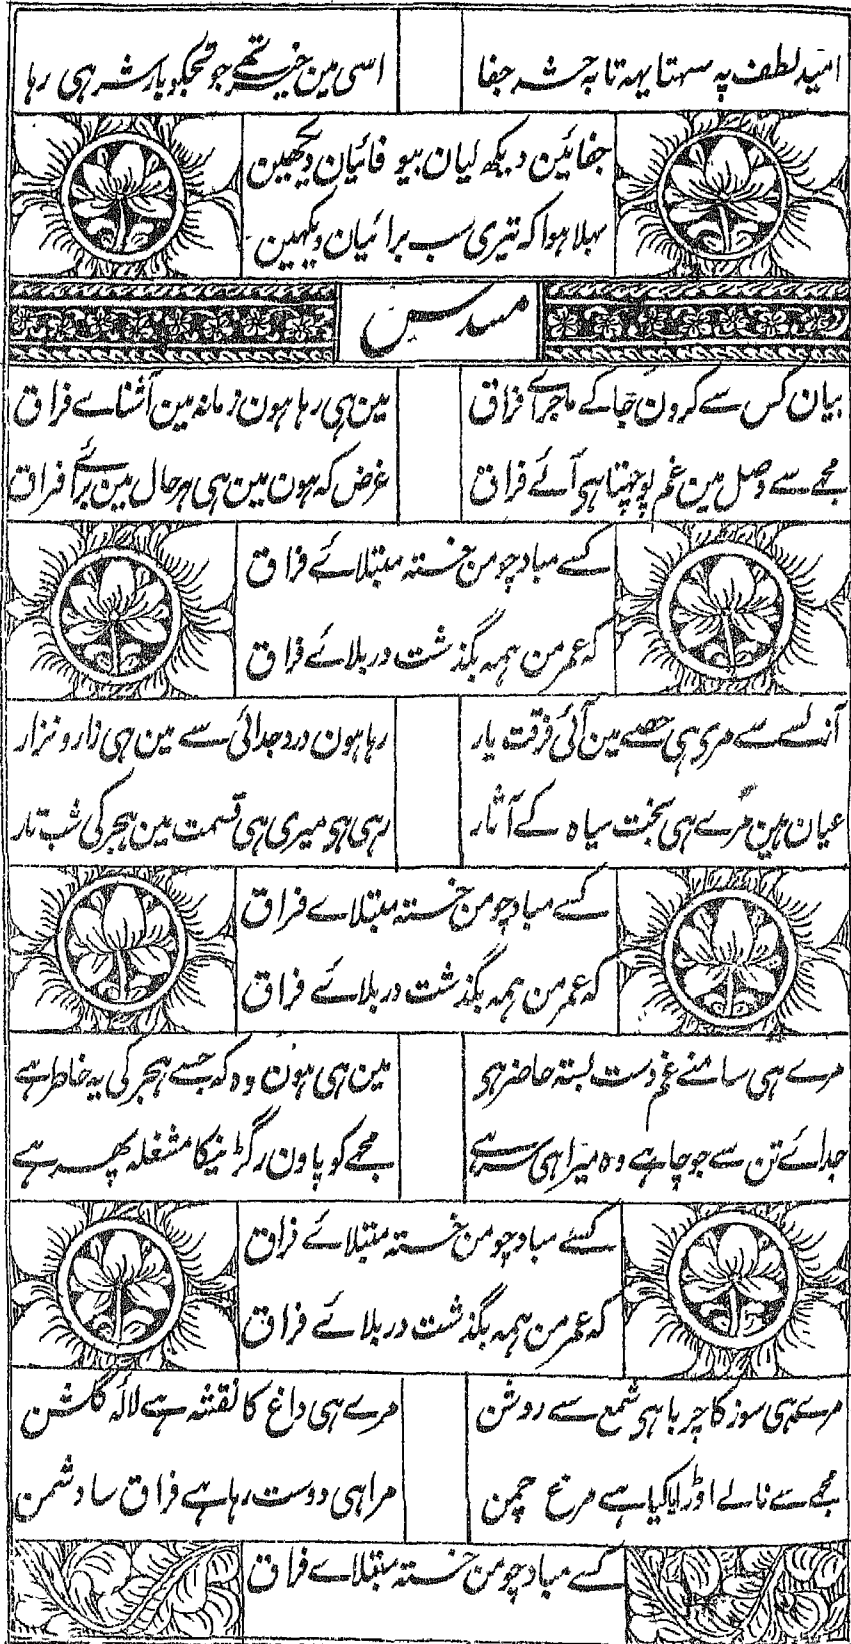 امید لطف پہ سہتا یہہ تا بہ حشر جفا
اسی مین خیر تھے جو تجکو پاس شر ہی رہا
جفائین دیکھ لیان بیو فائیان دیکھین
بہلا ہوا کہ تیری سب برائیان دیکہین
مسدس
بیان کس سے کرون جا کے ماجرائے فراق
مین ہی رہا ہون زمانہ مین آشناے فراق
مجھے سے وصل مین غم پوچہتا ہی آئے فراق
غرض کہ ہون مین ہی ہر حال مین برائے فراق
کسے مباد چو من خستہ مبتلائے فراق
کہ عمر من ہمہ بگذشت در بلائے فراق
ازلسے سے مری ہی حصے مین آئی فرقت یار
رہا ہون درد جدائی سے مین ہی زار و نزار
عیان ہین مرے ہی بخت سیاہ کے آثار
رہی ہو میری ہی قسمت مین ہجر کی شب تار
کسے مباد چو من خستہ مبتلاے فراق
کہ عمر من ہمہ بگذشت در بلائے فراق
مرے ہی سامنے غم دست بستہ حاضر ہی
مین ہی ہون وہ کہ جسے ہجر کی یہ خاطر ہے
جدائے تن سے جو چاہے وہ میرا ہی سر ہے
مجھے کو پاون رگڑنیکا مشغلہ پھر ہے
کسے مباد چو من خستہ مبتلائے فراق
کہ عمر من ہمہ بگذشت در بلائے فراق
مرے ہی سوز کا چربا ہی شمع سے روشن
مرے ہی داغ کا نقشہ ہے لالہ گلشن
مجھے سے نالے اوڑا یا کیا ہے مرغ چمن
مرا ہی دوست رہا ہے فراق سا دشمن
کسے مباد چو من خستہ مبتلاے فراق